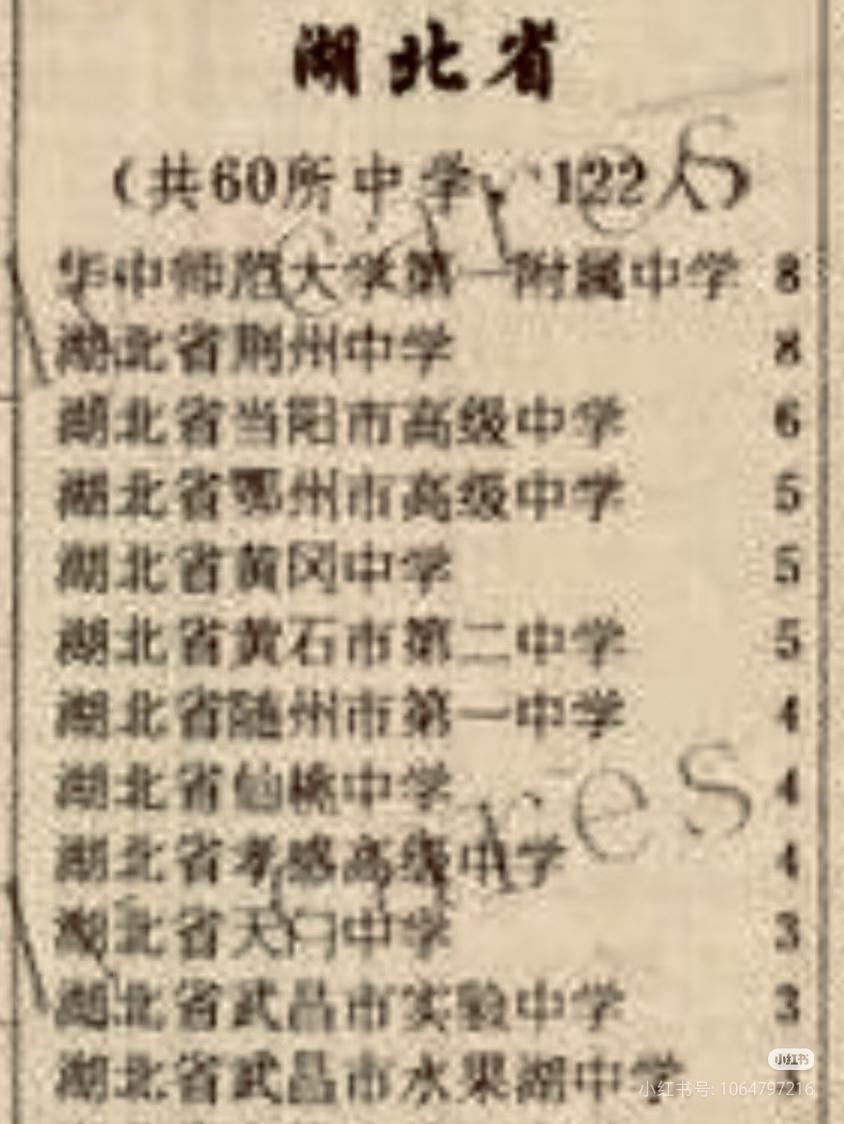 湖北省
(共60所中学, 122人)
华中师范大学第一附属中学 8
湖北省荆州中学 8
湖北省当阳市高级中学 6
湖北省鄂州市高级中学 5
湖北省黄冈中学 5
湖北省黄石市第二中学 5
湖北省随州市第一中学 4
湖北省仙桃中学 4
湖北省孝感高级中学 4
湖北省天门中学 3
湖北省武昌市实验中学 3
湖北省武昌市水果湖中学
小红书
小红书号: 1064797216